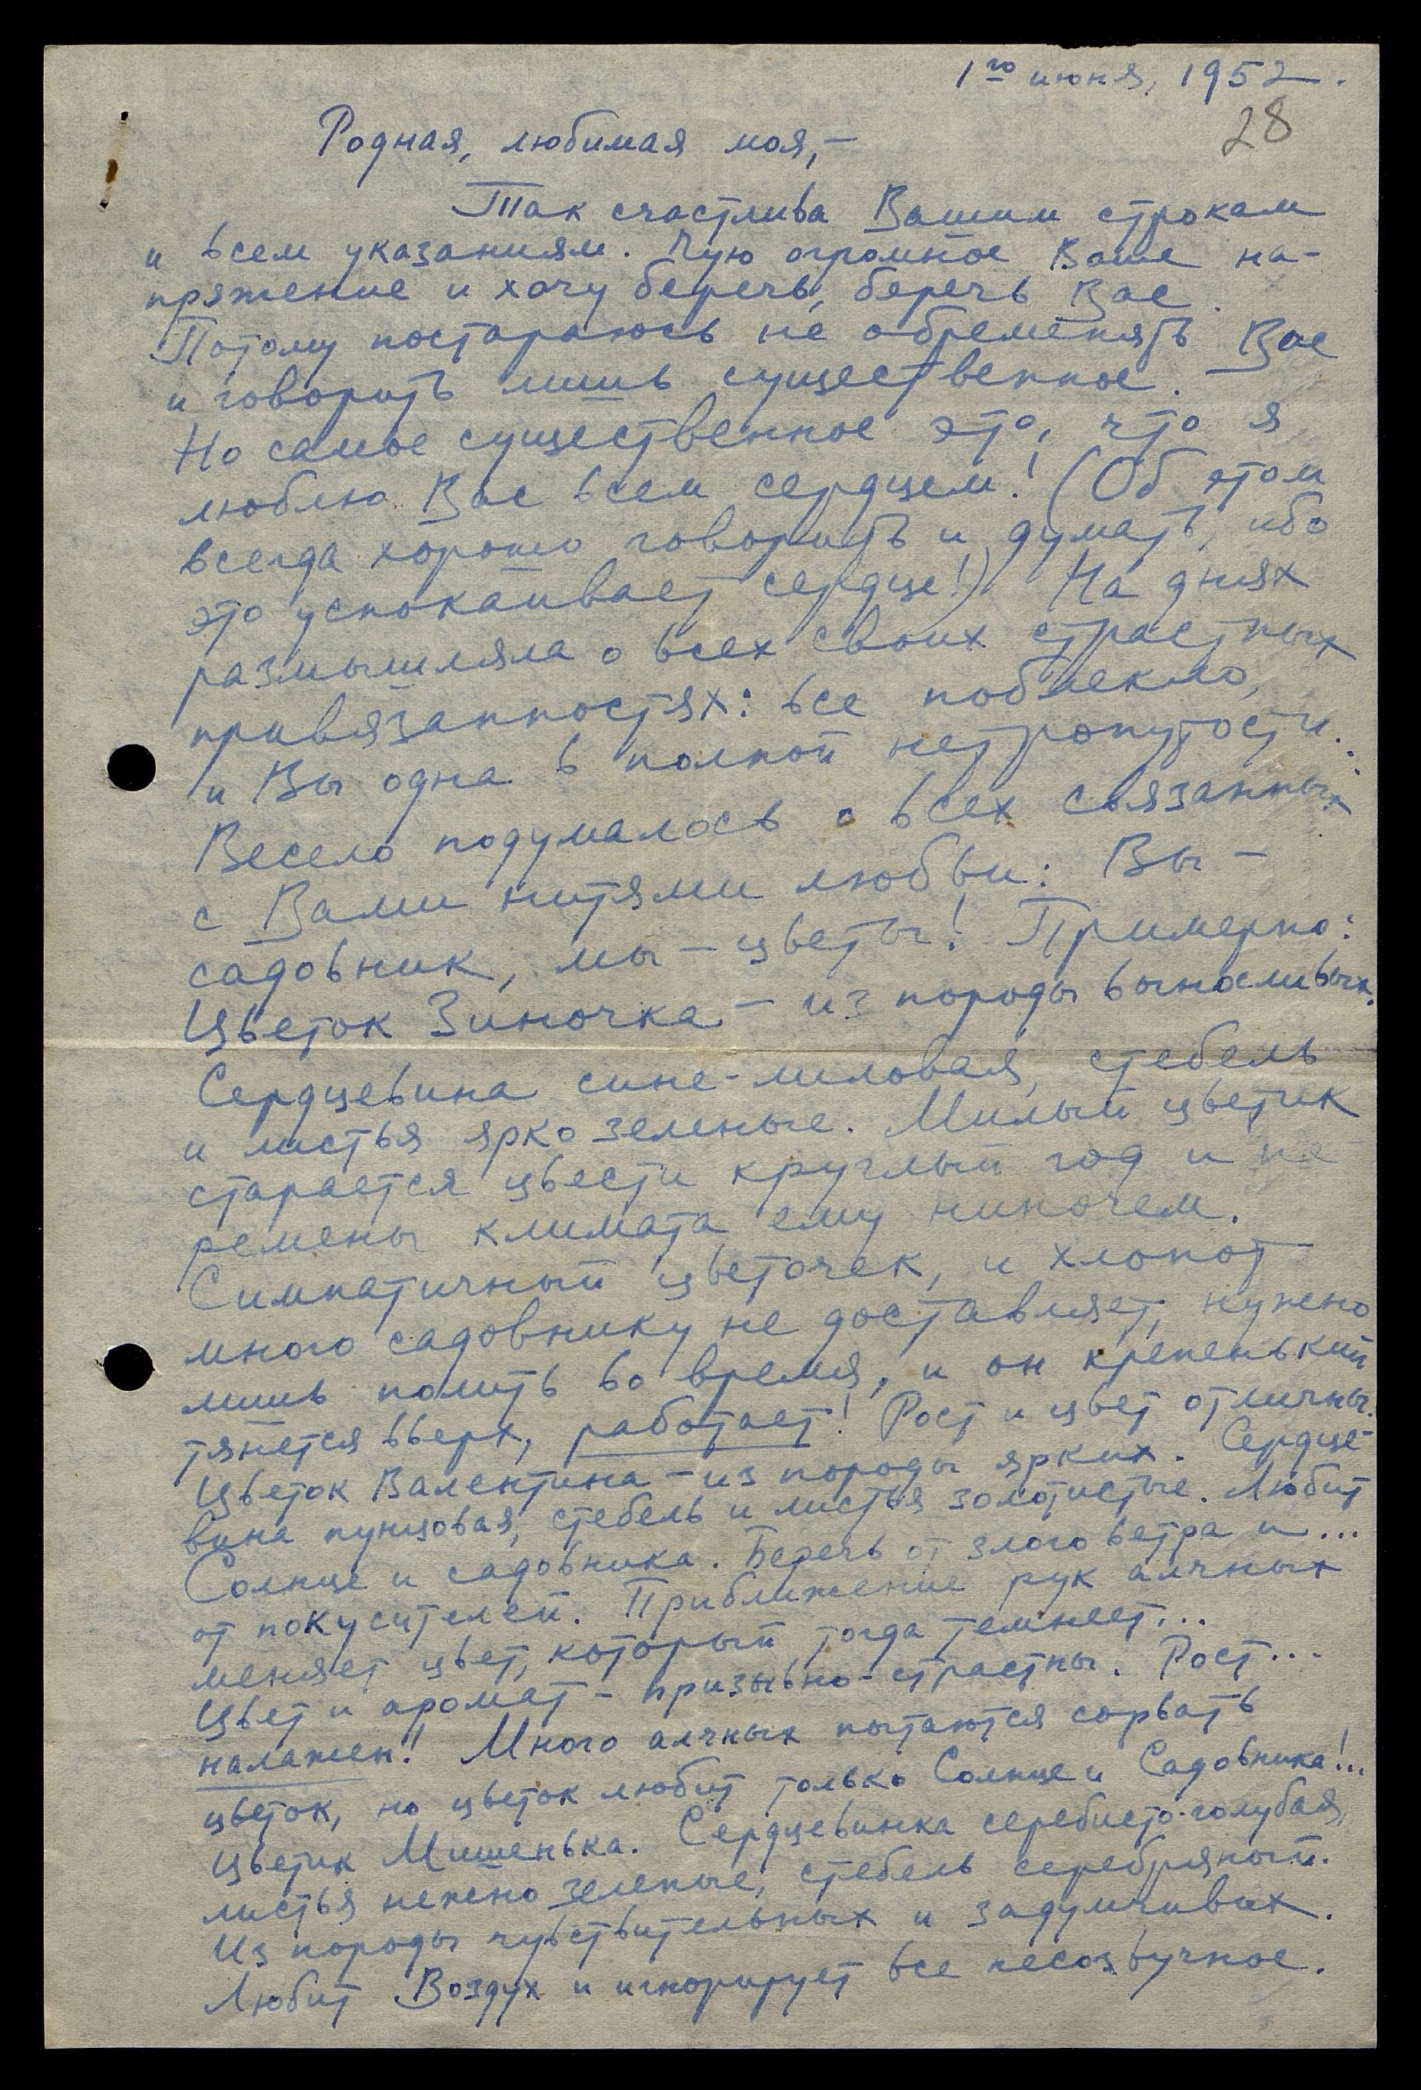 1го июня, 1952.
28
Родная, любимая моя, –
Так счастлива Вашим строкам
и всем указаниям. Чую огромное Ваше на-
пряжение и хочу беречь, беречь Вас.
Потому постараюсь не обременять Вас
и говорить лишь существенное.
Но самое существенное это, что я
люблю Вас всем сердцем! (Об этом
всегда хорошо говорить и думать, ибо
это успокаивает сердце!) На днях
размышляла о всех своих страстных
привязанностях: все поблекло,
и Вы одна в полной нетронутости.
Весело подумалось о всех связанных
с Вами нитями любви: Вы –
садовник, мы – цветы! Примерно:
Цветок Зиночка – из породы выносливых.
Сердцевина сине-лиловая, стебель
и листья ярко зеленые. Милый цветик
старается цвести круглый год и пе
ремены климата ему нипочем.
Симпатичный цветочек, и хлопот
много садовнику не доставляет, нужно
лишь полить во время, и он крепенький
тянется вверх, работает! Рост и цвет отличны.
Цветок Валентина – из породы ярких. Сердце-
вина пунцовая, стебель и листья золотистые. Любит
Солнце и садовника. Беречь от злого ветра и...
от покусителей. Приближение рук алчных
меняет цвет, который тогда темнеет...
Цвет и аромат – призывно-страстны. Рост...
налажен! Много алчных пытаются сорвать
цветок, но цветок любит только Солнце и Садовника!...
Цветик Мишенька. Сердцевинка серебисто-голубая,
листья нежно зеленые, стебель серебряный.
Из породы чувствительных и задумчивых.
Любит Воздух и игнорирует все несозвучное.